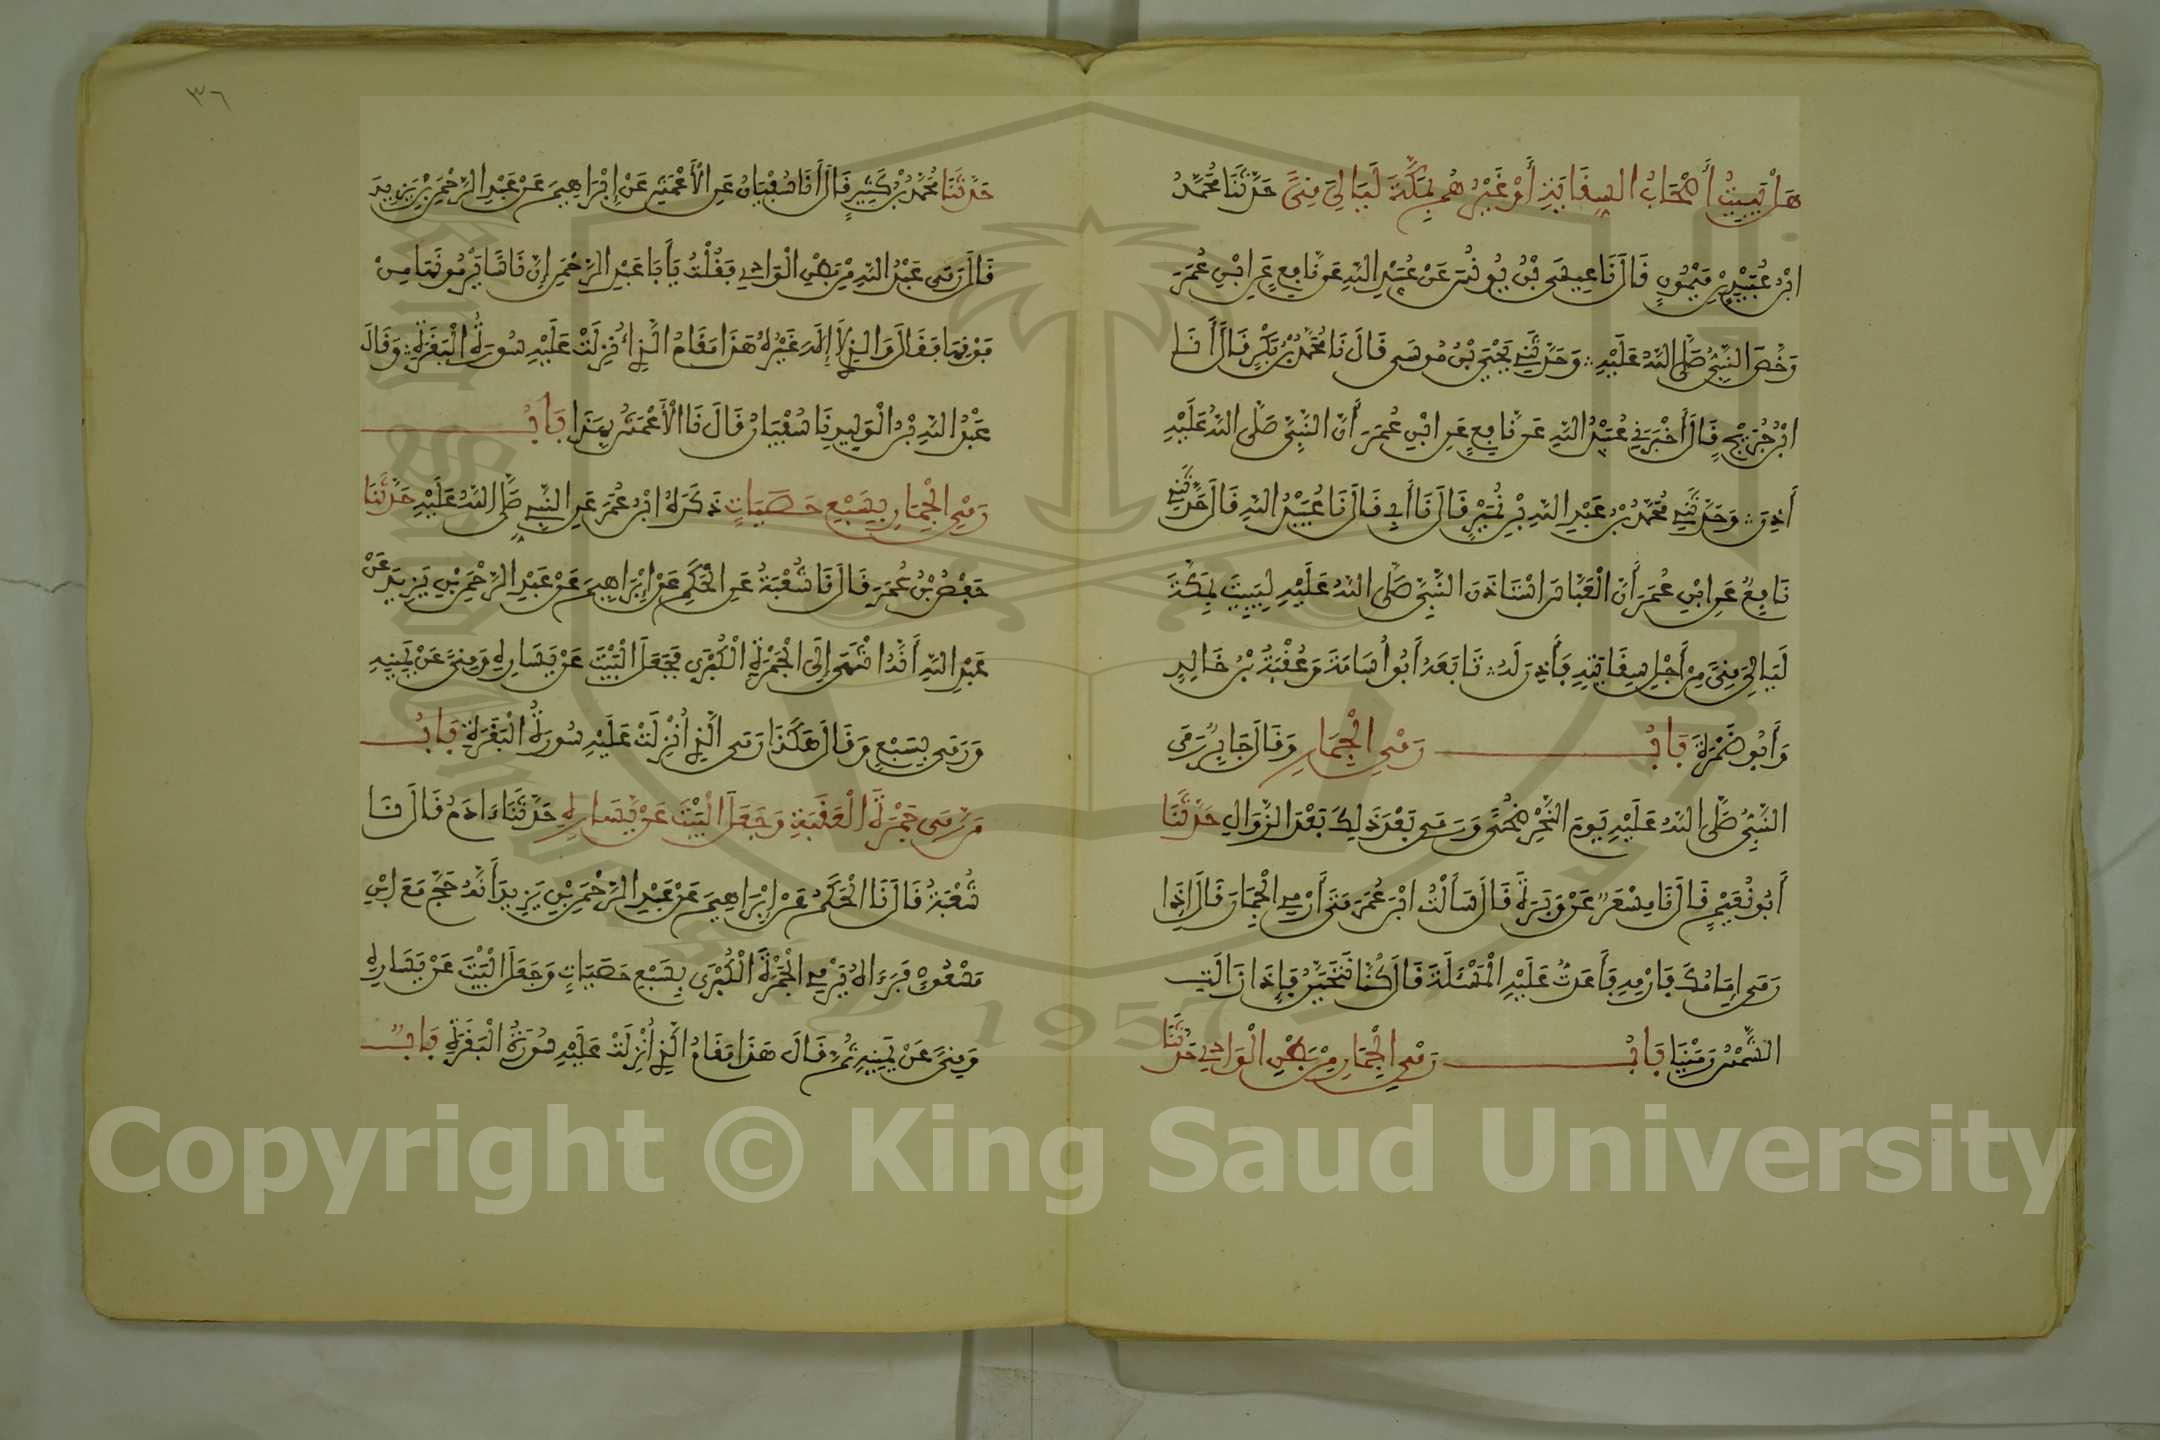 هَلْ تَبِيتُ أَصْحَابُ السِّقَايَةِ أَوْ غَيْرُهُم بِمَكَّةَ لَيَالِيَ مِنًى حَدَّثَنَا مُحَمَّدُ
ابْنُ عُبَيْدِ بْنِ مَيْمُونٍ قَالَ نَا عِيسَى بْنُ يُونُسَ عَنْ عُبَيْدِ اللَّهِ عَن نَافِعٍ عَنِ ابْنِ عُمَرَ
رَخَّصَ النَّبِيُّ صَلَّى اللَّهُ عَلَيْهِ وَحَدَّثَنِي يَحْيَى بْنُ مُوسَى قَالَ نَا مُحَمَّدُ بْنُ بَكْرٍ قَالَ أَنَا
ابْنُ جُرَيْجٍ قَالَ أَخْبَرَنِي عُبَيْدُ اللَّهِ عَن نَافِعٍ عَنِ ابْنِ عُمَرَ أَنَّ النَّبِيَّ صَلَّى اللَّهُ عَلَيْهِ
أَذِنَ وَحَدَّثَنِي مُحَمَّدُ بْنُ عَبْدِ اللَّهِ بْنِ نُمَيْرٍ قَالَ نَا أَبِي قَالَ نَا عُبَيْدُ اللَّهِ قَالَ حَدَّثَنِي
نَافِعٌ عَنِ ابْنِ عُمَرَ أَنَّ الْعَبَّاسَ اسْتَاذَنَ النَّبِيَّ صَلَّى اللَّهُ عَلَيْهِ لِيَبِيتَ بِمَكَّةَ
لَيَالِيَ مِنًى مِنْ أَجْلِ سِقَايَتِهِ فَأَذِنَ لَهُ تَابَعَهُ أَبُو أُسَامَةَ وَعُقْبَةُ بْنُ خَالِدٍ
وَأَبُو ضَمْرَةَ بَابُ رَمْيِ الْجِمَارِ وَقَالَ جَابِرٌ رَمَى
النَّبِيُّ صَلَّى اللَّهُ عَلَيْهِ يَوْمَ النَّحْرِ ضُحًى وَرَمَى بَعْدَ ذَلِكَ بَعْدَ الزَّوَالِ حَدَّثَنَا
أَبُو نُعَيْمٍ قَالَ نَا مِسْعَرٌ عَنْ وَبَرَةَ قَالَ سَأَلْتُ ابْنَ عُمَرَ مَتَى أَرْمِي الْجِمَارَ قَالَ إِذَا
رَمَى إِمَامُكَ فَارْمِهِ فَأَعَدتُّ عَلَيْهِ الْمَسْئَلَةَ قَالَ كُنَّا نَتَحَيَّنُ فَإِذَا زَالَتِ
الشَّمْسُ رَمَيْنَا بَابُ رَمْيِ الْجِمَارِ مِنْ بَطْنِ الْوَادِي حَدَّثَنَا
٣٦
حَدَّثَنَا مُحَمَّدُ بْنُ كَثِيرٍ قَالَ أَنَا سُفْيَانُ عَنِ الْأَعْمَشِ عَنْ إِبْرَاهِيمَ عَنْ عَبْدِ الرَّحْمَنِ بْنِ يَزِيدَ
قَالَ رَمَى عَبْدُ اللَّهِ مِنْ بَطْنِ الْوَادِي فَقُلْتُ يَا أَبَا عَبْدِ الرَّحْمَنِ إِنَّ نَاسًا يَرْمُونَهَا مِنْ
فَوْقِهَا فَقَالَ وَالذِي لَا إِلَهَ غَيْرُهُ هَذَا مَقَامُ الَّذِي أُنْزِلَتْ عَلَيْهِ سُورَةُ الْبَقَرَةِ وَقَالَ
عَبْدُ اللَّهِ بْنُ الْوَلِيدِ نَا سُفْيَانُ قَالَ نَا الْأَعْمَشُ بِهَذَا بَابُ
رَمْيِ الْجِمَارِ بِسَبْعِ حَصَيَاتٍ ذَكَرَهُ ابْنُ عُمَرَ عَنِ النَّبِيِّ صَلَّى اللَّهُ عَلَيْهِ حَدَّثَنَا
حَفْصُ بْنُ عُمَرَ قَالَ نَا شُعْبَةُ عَنِ الْحَكَمِ عَنْ إِبْرَاهِيمَ عَنْ عَبْدِ الرَّحْمَنِ بْنِ يَزِيدَ عَنْ
عَبْدِ اللَّهِ أَنَّهُ انْتَهَى إِلَى الْجَمْرَةِ الْكُبْرَى فَجَعَلَ الْبَيْتَ عَنْ يَسَارِهِ وَمِنًى عَنْ يَمِينِهِ
وَرَمَى بِسَبْعٍ وَقَالَ هَكَذَا رَمَى الَّذِي أُنْزِلَتْ عَلَيْهِ سُورَةُ الْبَقَرَةِ بَابُ
مَنْ رَمَى جَمْرَةَ الْعَقَبَةِ وَجَعَلَ الْبَيْتَ عَنْ يَسَارِهِ حَدَّثَنَا ءَادَمُ قَالَ نَا
شُعْبَةُ قَالَ نَا الْحَكَمُ عَنْ إِبْرَاهِيمَ عَنْ عَبْدِ الرَّحْمَنِ بْنِ يَزِيدَ أَنَّهُ حَجَّ مَعَ ابْنِ
مَسْعُودٍ فَرَءَاهُ يَرْمِي الْجَمْرَةَ الْكُبْرَى بِسَبْعِ حَصَيَاتٍ وَجَعَلَ الْبَيْتَ عَنْ يَسَارِهِ
وَمِنًى عَنْ يَمِينِهِ ثُمَّ قَالَ هَذَا مَقَامُ الَّذِي أُنْزِلَتْ عَلَيْهِ سُورَةُ الْبَقَرَةِ بَابٌ
1957
Copyright © King Saud University